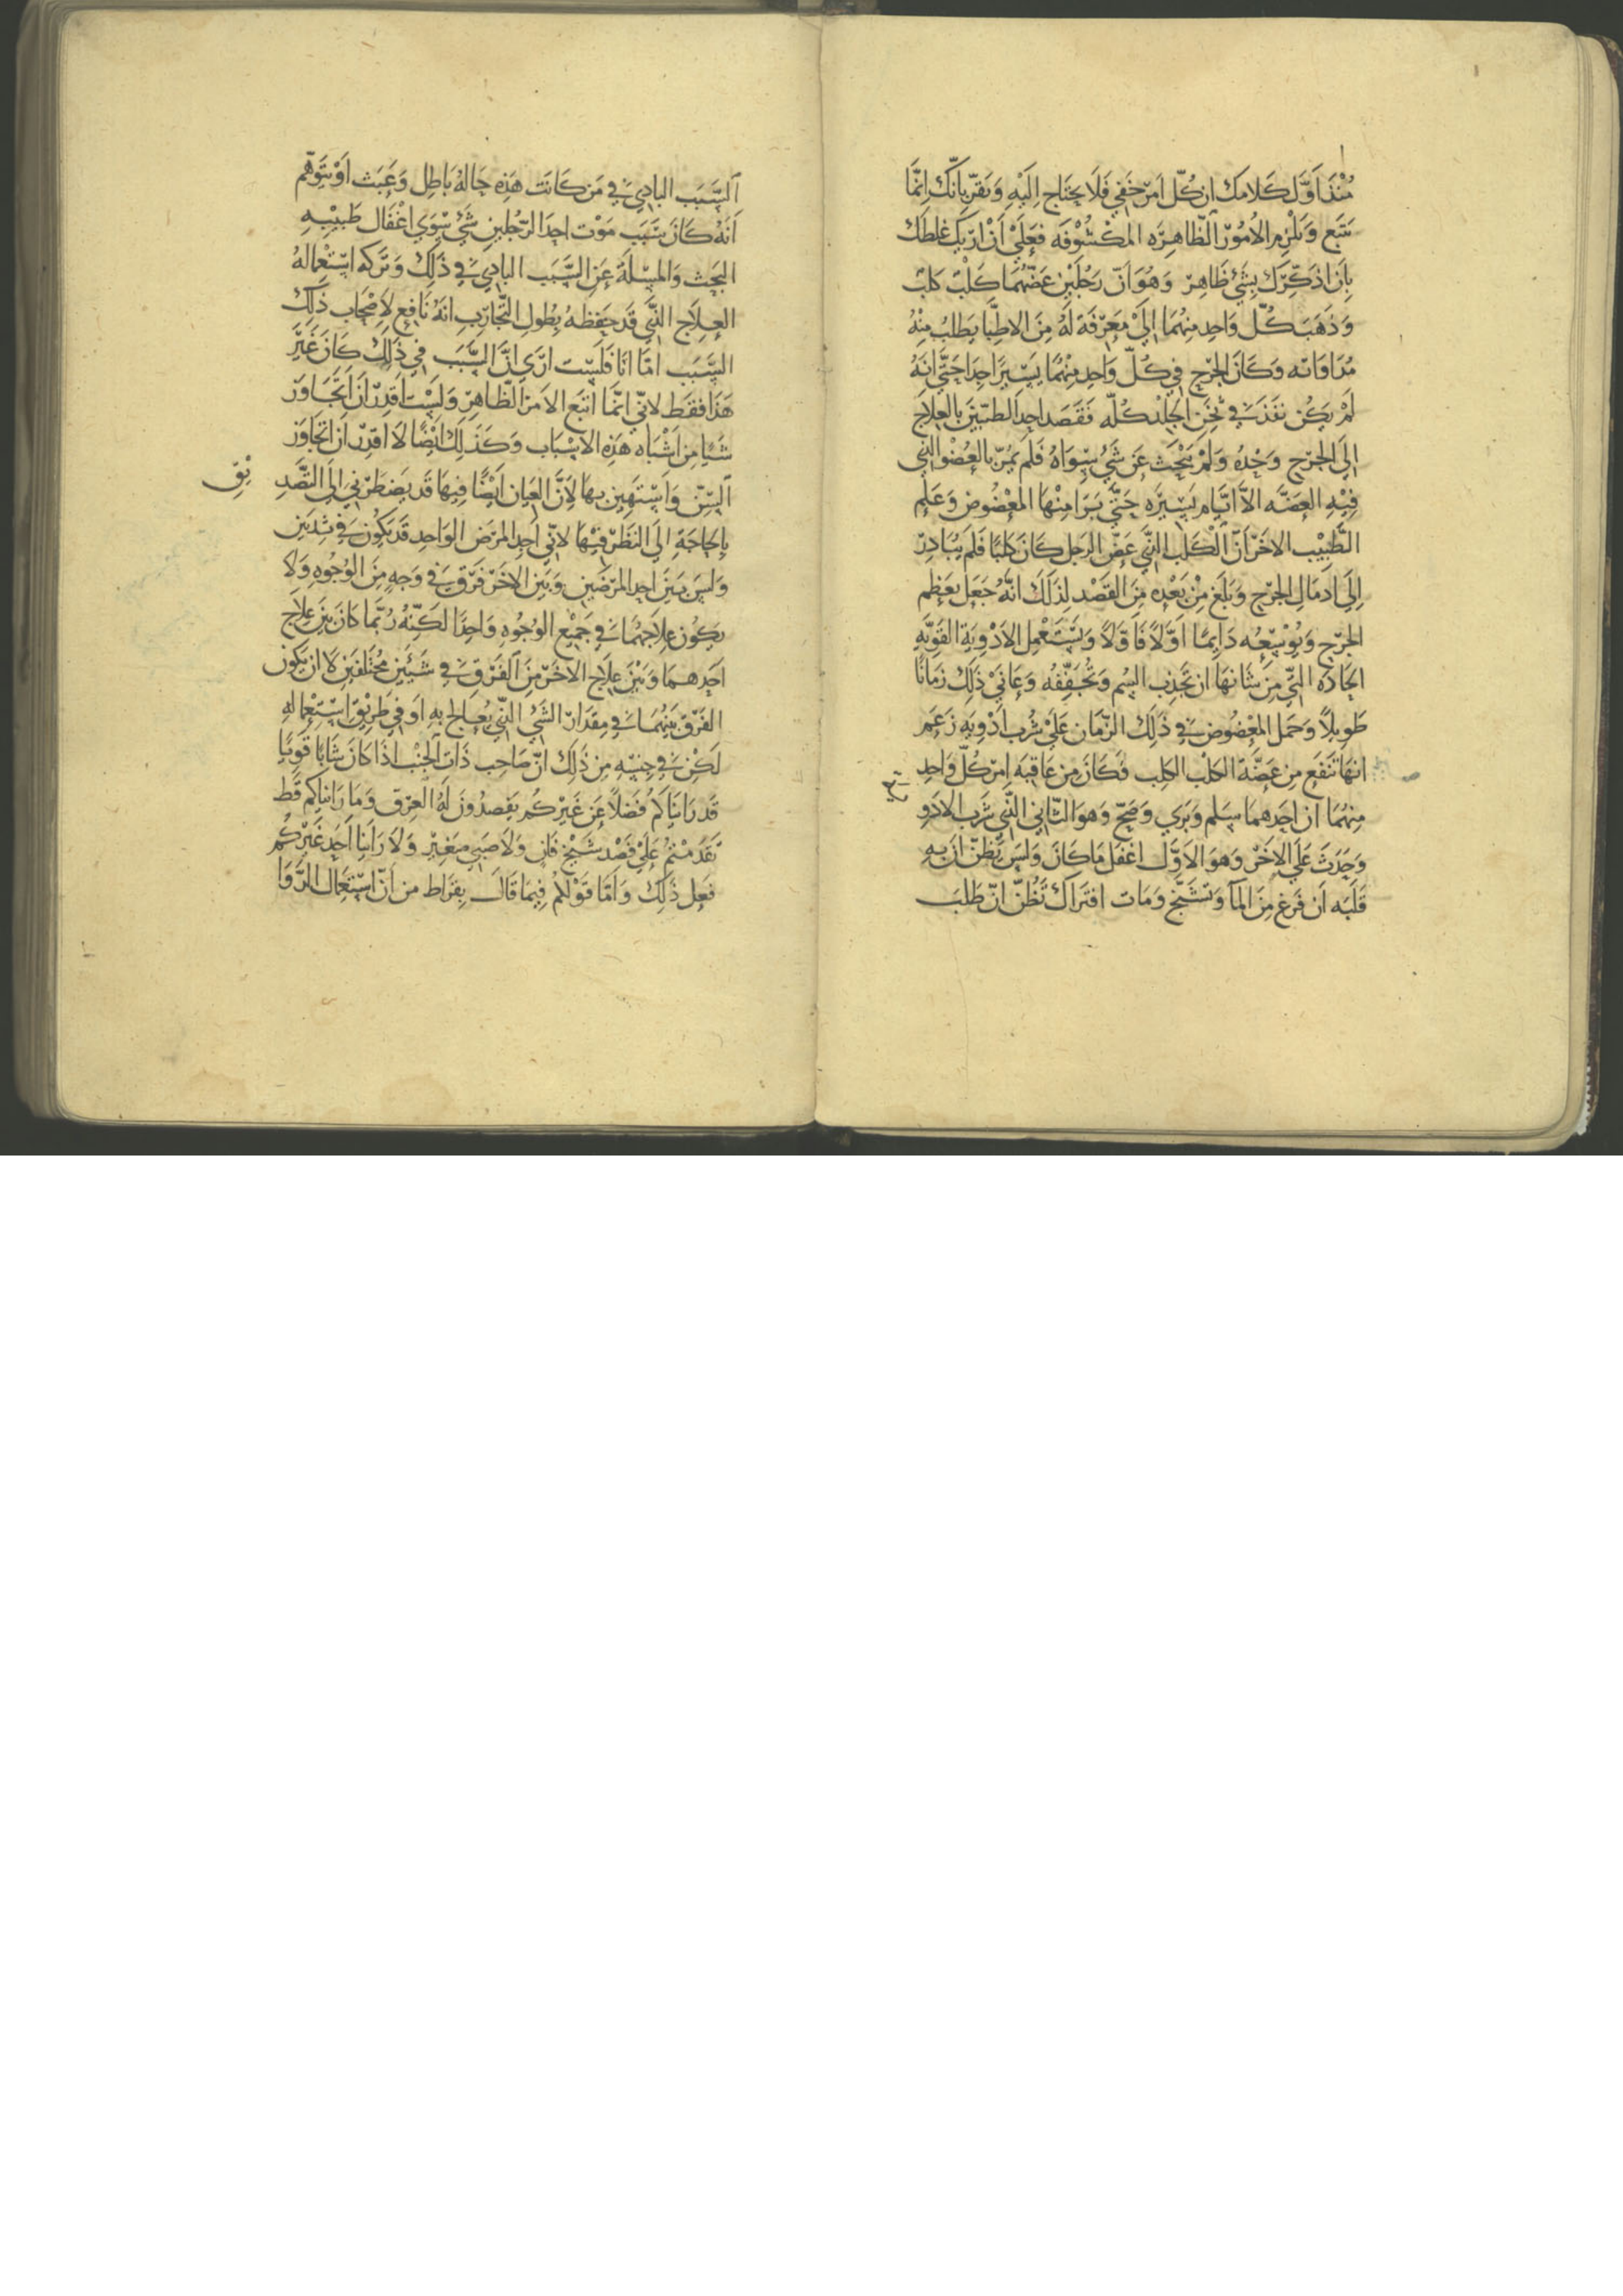 مُنْذُ اَوَّل كَلَامك ان كُلّ اَمرٍ خَفي فَلَا يحتَاج اِلَيهِ وَتقرّ بانّكَ اِنَّمَا
تتبع وَتلزم الاُمُورَ الظّاهِرَه المكشُوفَه فعَلَيّ اَنْ ارّيكَ غلطَك
بِاَن اذكّرَك بشَيءٍ ظَاهِر وَهُوَ اَنّ رَجُلَين عَضّهُمَا كَلْبٌ كَلبٌ
وَذهَبَ كُلّ وَاحِد منهُمَا اِلَي مَعرّفَة لَهُ مِنَ الاطِبّا يَطلبُ مِنْهُ
مُدَاوَاته وَكَانَ الجرح في كُلّ وَاحِد مِنْهُمَا يَسيرًا جِدًا حَتّي انهُ
لَمْ يَكُن نفَذَ في ثخَن الجلد كُلّه فَقَصَد احِد الطبيبَين بالعلَاج
اِلي الجرح وَحْدهُ وَلَمْ يَبْحَث عَن شَيءٍ سِوَاهُ فَلَم يمُرّ بالعُضْو الذي
فيْهِ العَضّه الاّ ايّام يَسِيرَه حَتَّي بَرَا مِنْهَا المعْضُوض وَعَلم
الطَّبيب الاخَر انَّ الْكَلب الذَّي عَضّ الرجل كَانَ كَلبًا فَلَم يُبَادِر
اِلَي ادمَال الجرح وَبلَغ مِنْ بَعْدِه مِنَ القصْد لِذَلكَ انَّهُ جَعَل يعَظم
الجرح وَيُوسّعُه دَايمًا اَوّلاً فَاوّلاً وَيَستَعْمِل الادْويَة القَوِيّهِ
الحَادّه التي مِن شَانهَا ان تَجذِب السّم وَتُجَفِّفُه وَعَانيْ ذَلِكَ زَمَانًا
طَويلاً وَحَمل المعْضُوض في ذَلِك الزّمَان عَليْ شُرب ادْويَهٍ زَعَم
انهَا تَنفَع مِن عَضّة الكلْب الكلِب فكَانَ مِن عَاقبَه اِمر كُلّ وَاحِدٍ
مِنهُمَا ان احَدهمَا سَلم وَبَري وَصَحّ وَهوَ الثّاني الذّي شَرب الادو
وَحَدَثَ عَلَي الاخَر وَهوَ الاَوّل اغفل مَا كَانَ وَليسَ يَظنّ ان بهِ
قَلَبَه اَن فَزع مِنَ المآ وَتشَنّج وَمَات افتَرَاكَ تَظُنّ انّ طَلبَ
اَلسَّبَب البادِي في مَن كَانَت هَذِهِ حَالهُ بَاطِل وَعَبَث اَوْ تتَوهّم
اَنهُ كَانَ سَبَب مَوْت احِد الرّجُلين شَيء سِوَي اغْفَال طَبيْبهِ
البَحث وَالمسلَة عَن السَّبَب البادِي في ذَلِكَ وَتَركه اسْتعْمالهُ
العِلَاج الذَّي قَد حَفِظهُ بطُولِ التّجَارب انهُ نَافِع لاِصْحَاب ذَلِك
السَّبَب امّا انَا فَلَست ارَي انَّ السَّبَب في ذَلِكَ كَانَ غَيرَ
هَذَا فقَط لانّي انّمَا اتبَع الاَمرَ الظّاهِر وَلَسْتُ اَقدِر ان اَتَجَاوَز
شَيًا مِن اَشْبَاه هَذِه الاسْبَاب وَكَذَلِكَ ايْضًا لاَ اقدِر ان اتَجَاوَز
اَلسِّنّ وَاسْتهِين بهَا لِاَنَّ العِيَان اَيْضًا فِيهَا قَد يَضطَرّني اِلَي التّصَدِ
يْقِ
بِالحَاجَةِ اِلَي النّظَر فيْهَا لانّي اجِد المرَض الوَاحِد قَد يَكُونُ في بَدَنَين
وَليسَ بَينَ احِد المرَضَين وَبَين الاخَر فَرْق في وَجهٍ مِنَ الوُجُوهِ وَلاَ
يَكُون عِلاجهُمَا في جَميْع الوجُوه وَاحِدًا لكنّه رُبَّما كَانَ بَينَ عِلَاج
اَحِدهمَا وَبَيْنَ عِلاج الاخَر مِنَ الفَرْق في شَيئَين مُختَلفَين لَا ان يَكُون
الفَرْق بَيْنهُمَا في مِقدَار الشَّيْ الذّي يُعَالج بِهِ اوَ في طَريْق اسْتِعمالهِ
لَكِن في جنسِهِ مِن ذَلِك انّ صَاحِب ذَات الجَنْب اذَا كَانَ شَابًا قَويًا
قَد رَايَنَاكمُ فَضلاً عَن غَيْركُم يَفصدُونَ لهُ العِرق وَمَا رَايناكم قَط
تَقَدّمْتُم عَلَيْ فصْدِ شَيْخ فَانٍ وَلَا صَبي صَغِيْر وَلاَ رَاَيْنَا اَحِد غَيْركُم
فعَل ذَلِكَ وَاَمّا قَوْلكُمْ فيمَا قَالَ بقرَاط مِن اَنّ اسْتعمَال الدّوَا